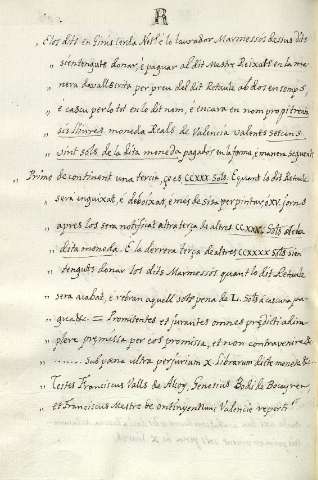 R
E los dits en Ginés Cerda Not.e e lo laurador Marmessos dessus dits
" scentenguts donar, é paguar al dit Mestre Reixats en la ma
" nera davall scrita per preu del dit Retaule abdos en temps,
" é cascu per lo tot en lo dit nom, é encara en nom propi trenta
" sis lliures moneda Reals de Valencia valents setcens
" vint sols de la dita moneda pagadors en la forma é manera seguent:
Primo de continent una tercia, ço es CCXXX Sols. E quant lo dit Retaule
" sera enguixat, é deboixat, é mes de sisa per pintar, é XV jorns
" apres los sera notificat altra terça de altres CCXXX Sols de la
" dita moneda. E la derrera terça de altres CCXXXX Sols sien
" tenguts donar los dits Marmessors quant lo dit Retaule
" sera acabat, é rebran aquell sots pena de L. Sols á cascuna pa-
" gua &c. = Promitentes et jurantes omnes predicti adim
" plere premissa per eos promissa, et non contravenire &c
" ........ Sub pena ultra perjurium X librarum dicte monete &c
" Testes Franciscus Valls de Alcoy, Genesius Bodi de Bocayren
" et Franciscus Mestre de ontinyent Regni Valencie reperti